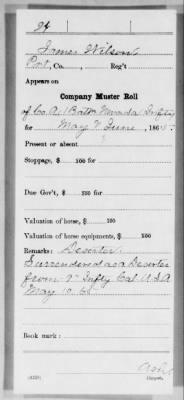 James Wilson
Pvt, Co. , Reg't
Appears on
Company Muster Roll
of Co. A, 1 Batt'n Nevada Inf'try
for May & June, 1865.
Present or absent
Stoppage, $ 100 for
Due Gov't, $ 100 for
Valuation of horse, $ 100
Valuation of horse equipments, $ 100
Remarks: Deserter.
Surrendered as a Deserter
from 2" Infty Cal. U.S.A
May 10. 65
Book mark:
(358)
Copyist.